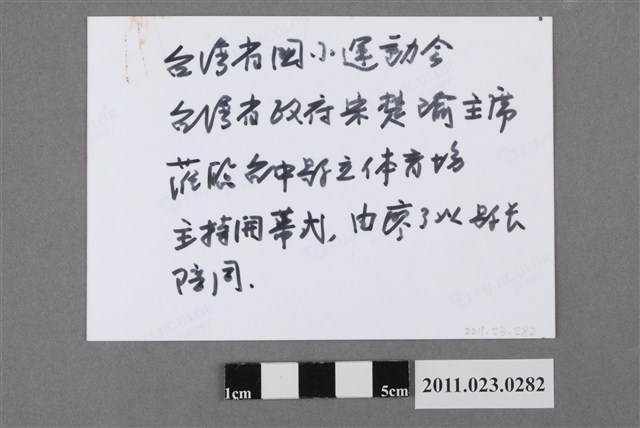 台湾省国小運动会
台湾省政府宋楚瑜主席
蒞临台中县立体育場
主持開幕式，由廖了以县长
陪同.
2011.23.282
1cm 5cm
2011.023.0282